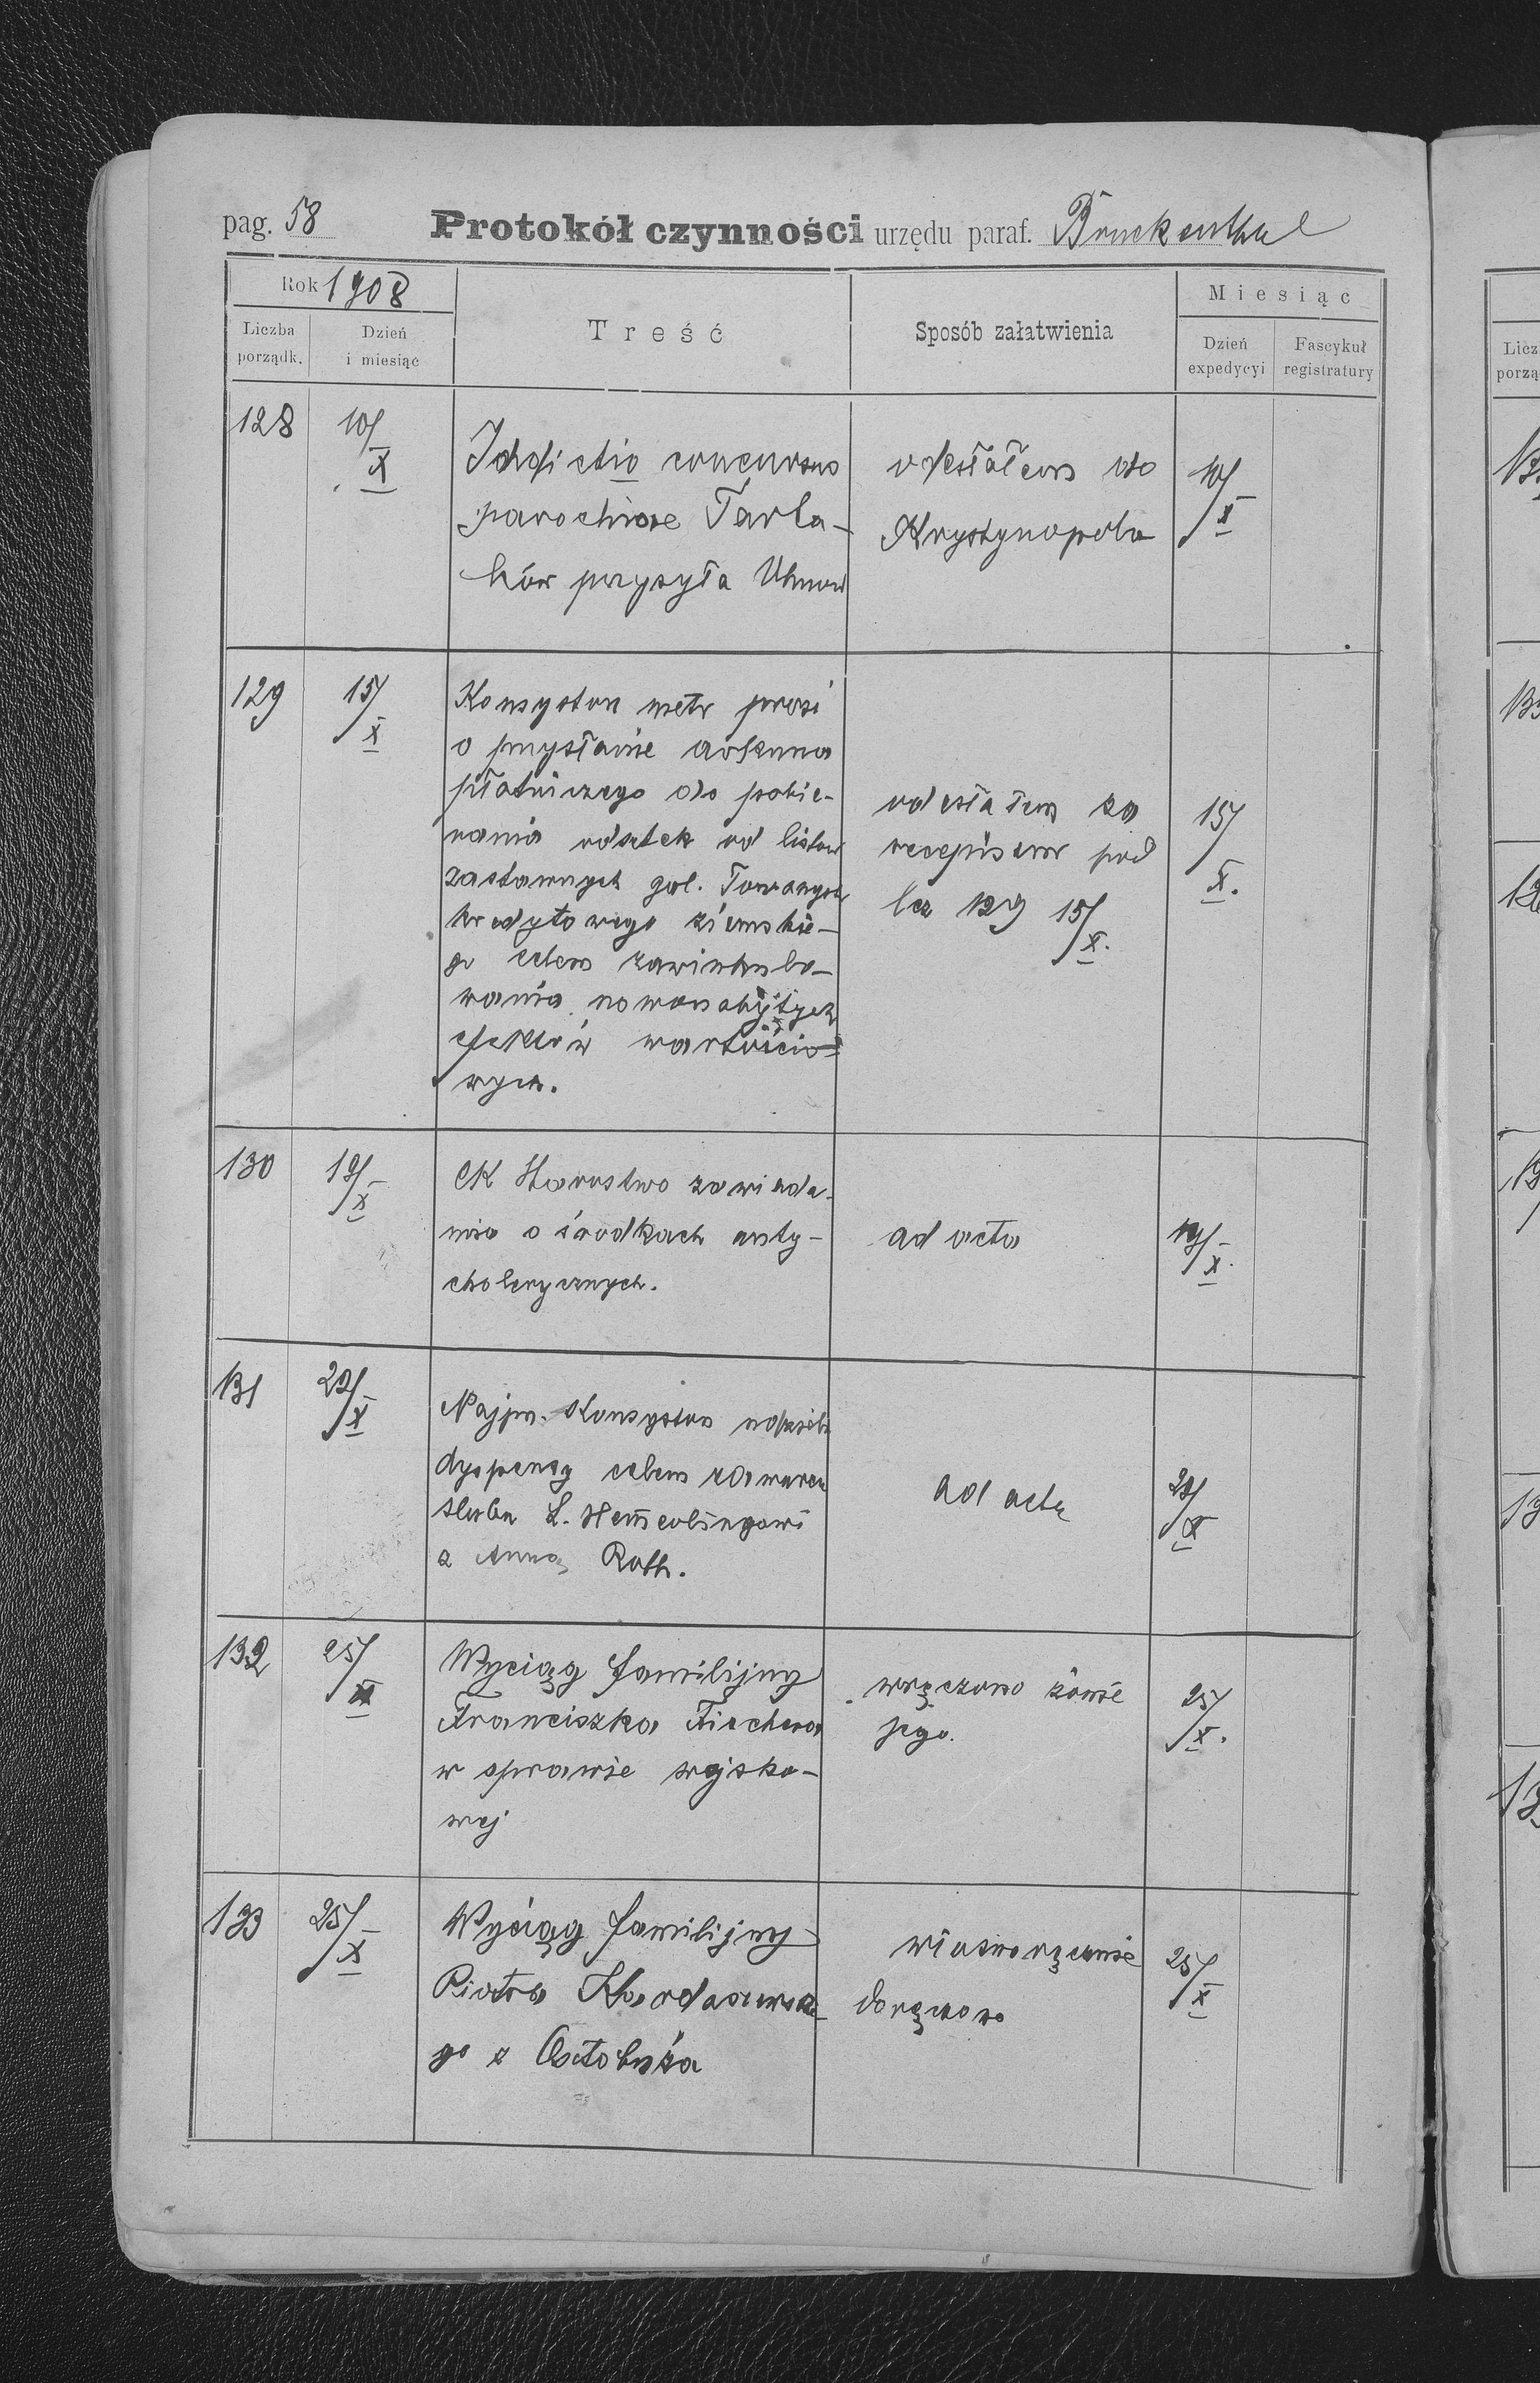 pag. 58 Protokół czynności urzędu paraf. Bruckenthal
Rok 1908
Liczba porządk.
Dzień i miesiąc
Treść
Sposób załatwienia
Miesiąc
Dzień expedycyi
Fascykuł registratury
128
10/X
Indictio concursus
parochiae Tarta-
ków przysyła Uhnow
odesłałem do
Krystynopola
10/X
129
15/X
Konsystorz metr prosi
o przysłanie arkusza
płatniczego do pobie-
rania odsetek od listów
zastawnych gal. Towarzyst
kredytowego ziemskie-
go celem zawinkulo-
wania nowonabytych
efektów wartościo-
wych.
odesłałem za
recepisem pod
lcz 129 15/X.
15/X.
130
19/X
CK Starostwo zawiada-
mia o środkach anty-
cholerycznych.
ad acta
19/X.
131
22/X
Najprz. Konsystorz udziela
dyspensy celem zawarcia
ślubu L.
z Anną Roth.
ad acta
22/X
132
25/X
Wyciąg familijny
Franciszka Fischera
w sprawie wojsko-
wej
wręczono żonie
jego.
25/X.
133
25/X
Wyciąg familijny
Piotra
go z Ostobuża
własnoręcznie
doręczono
25/X
Licz
porzą